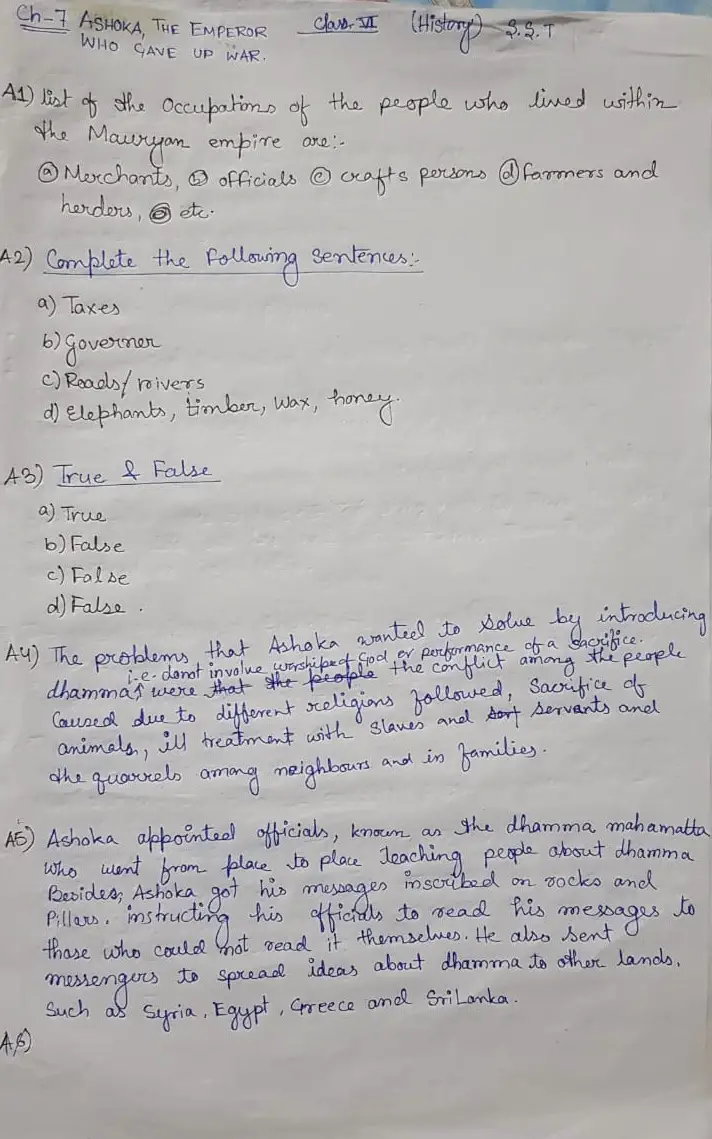 Ch-7 ASHOKA, THE EMPEROR Class-VI (History) S.S.T
WHO GAVE UP WAR.
A1) list of the Occupations of the people who lived within
the Mauryan empire are:-
(a) Merchants, (b) officials (c) crafts persons (d) farmers and
herders, etc.
A2) Complete the following sentences:-
a) Taxes
b) Governer
c) Roads/ rivers
d) Elephants, timber, wax, honey.
A3) True & False
a) True
b) False
c) False
d) False .
A4) The problems that Ashoka wanted to solve by introducing
i.e. donot involve worshipe of God or performance of a sacrifice.
dhamma were that the people the conflict among the people
Caused due to different religions followed, Sacrifice of
animals, ill treatment with slaves and sort servants and
the quarrels among neighbours and in families.
A5) Ashoka appointed officials, known as the dhamma mahamatta
who went from place to place teaching people about dhamma
Besides, Ashoka got his messages inscribed on rocks and
Pillars, instructing his officials to read his messages to
those who could not read it themselves. He also sent
messengers to spread ideas about dhamma to other lands,
Such as Syria, Egypt, Greece and SriLanka.
A6)